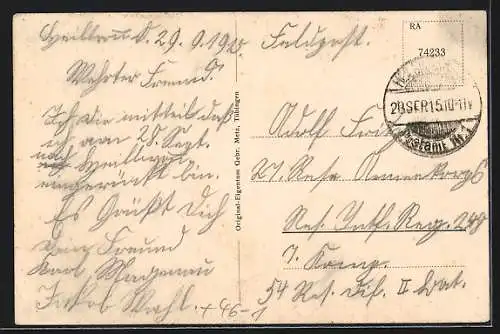 Heilbronn d. 29. 9. 1915.
Werther Freund!
Ich die mitteil daß
ich am 28. Sept.
nach Heilbronn
eingerückt bin.
Es Grüßt Dich
Dein Freund
Karl
Jakob Wahl.
Original-Eigentum Gebr. Metz, Tübingen
Feldpost.
RA
74233
28 SEP. 15. 10-11 V
Postamt Nr. 1
Adolf
27. Res. Armeekorps
Res. Inf. Reg. 249
7. Komp.
54 Res. Dif. II Bat.